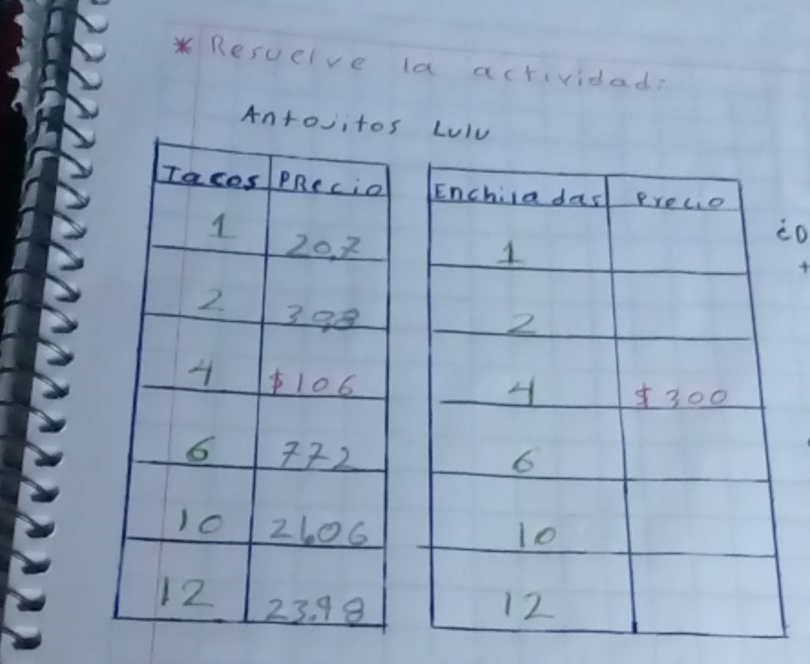 * Resuelve la actividad:
Antojitos Lulu
Tacos PRecio
1 20.7
2
4 $106
6 772
10 2606
12 23.98
Enchiladas Precio
1
2
4 $300
6
10
12